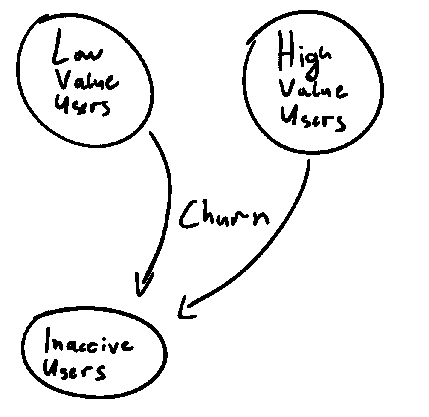 Low
Value
Users
High
Value
Users
Churn
Inactive
Users